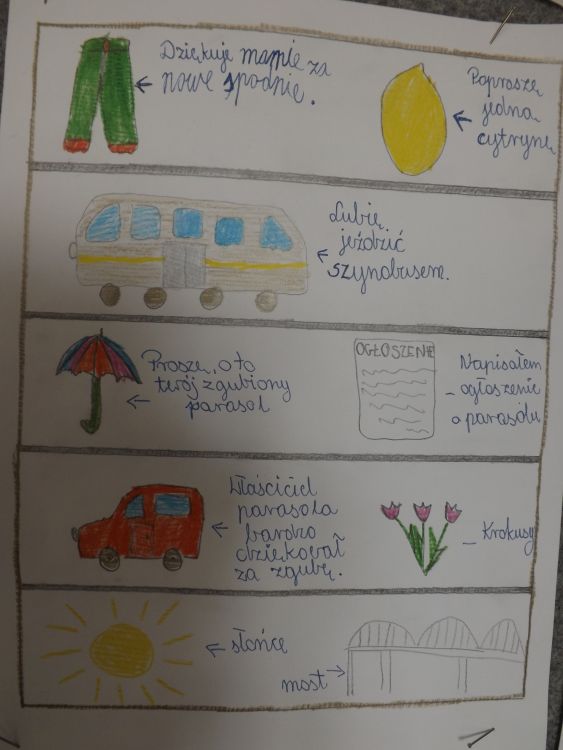 Dziękuję mamie za
nowe spodnie.
Poproszę
jedną
cytrynę
Lubię
jeździć
szynobusem.
Proszę, oto
twój zgubiony
parasol
OGŁOSZENIE
Napisałem
ogłoszenie
o parasolu
Właściciel
parasola
bardzo
dziękował
za zgubę.
Krokusy
słońce
most